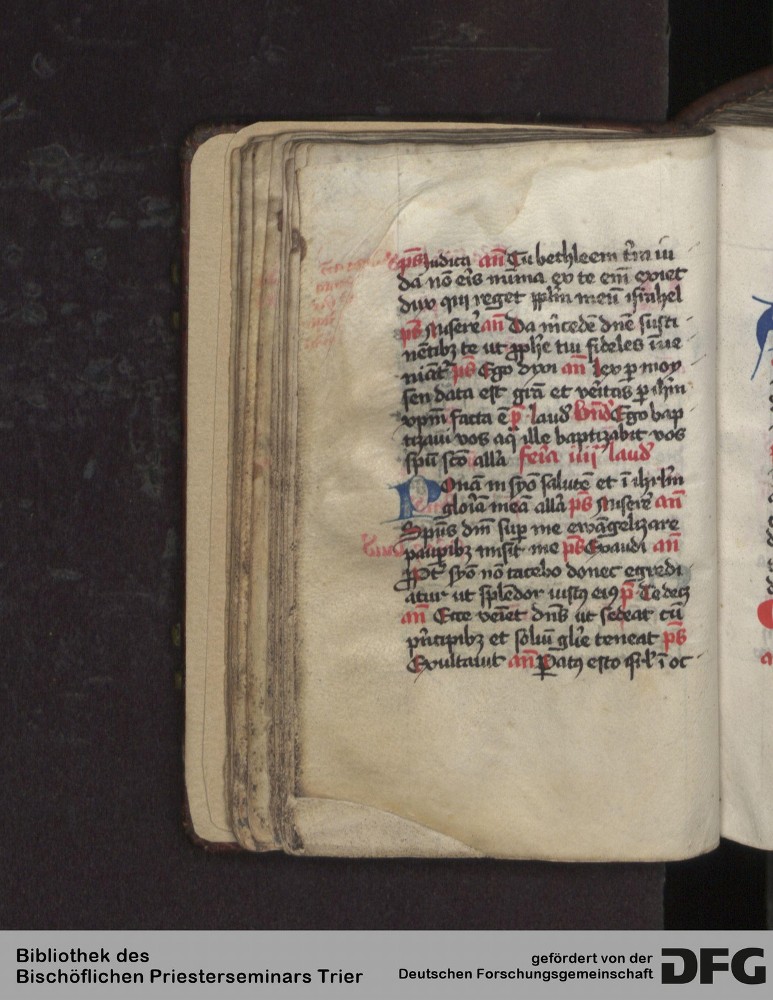 ps Iudica an Tu bethleem t̄ra iu
da nō eīs minima ex te em̄ exiet
dux qui reget pplm̄ meū israhel
ps Miserere an Da m̄cedē dn̄e susti
nētibꝫ te ut ꝓphe tui fideles īue
niāt ps Ego dixi an Lex ꝑ moy
sen data est gr̄a et veritas ꝑ ihm̄
xpm̄ facta ē p̄ laud Bn̄d Ego bap
tizavi vos aq̄ ille baptizabit vos
spū scō all̄a feria iiij laud
Ponam in syō salutē et ī ihrl̄m
gloriā meā all̄a ps Miserere an
Spūs dn̄i sup me ewāgelizare
pauꝑibꝫ misit me ps Exaudi an
Ppt̄ syō nō tacebo donec egredi
atur ut splēdor iustꝰ eiꝰ p̄ Te decꝫ
an Ecce veniet dn̄s ut sedeat cū
pⁿcipibꝫ et soliū glīe teneat ps
Exultavit an Patꝰ esto isrl̄ ī oc
Bibliothek des
Bischöflichen Priesterseminars Trier
gefördert von der
Deutschen Forschungsgemeinschaft
DFG